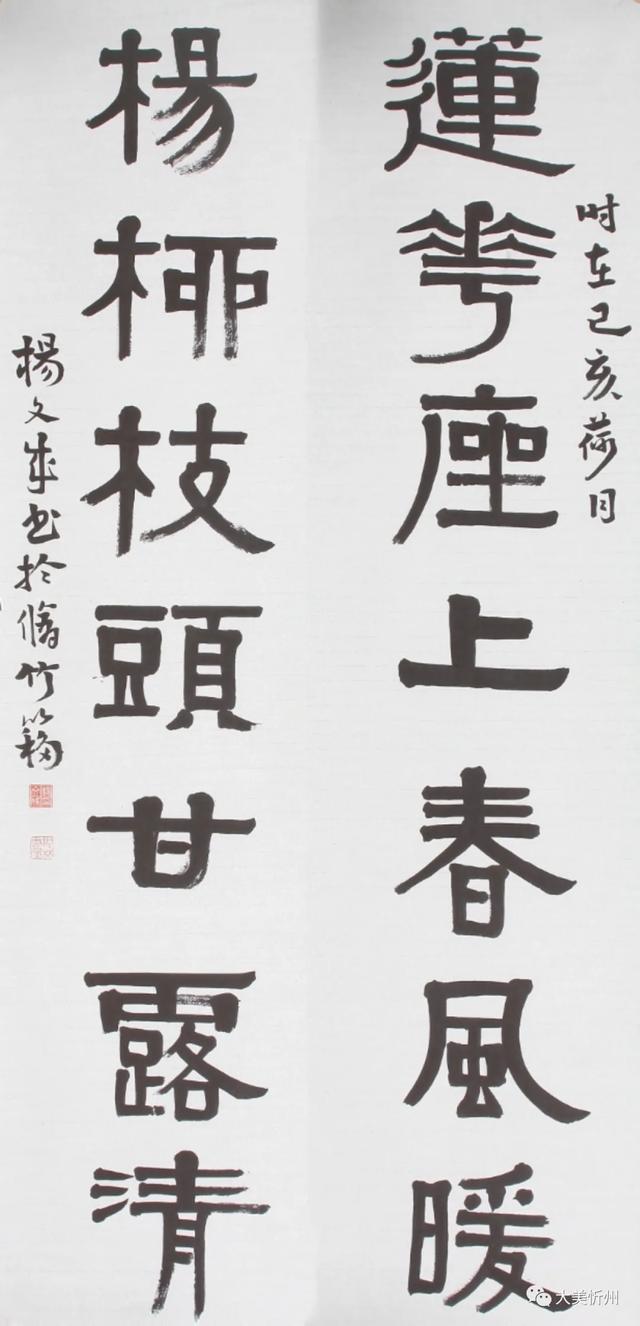 时在己亥荷月
蓮花座上春風暖
楊柳枝頭甘露清
楊文成书於脩竹簃
大美忻州